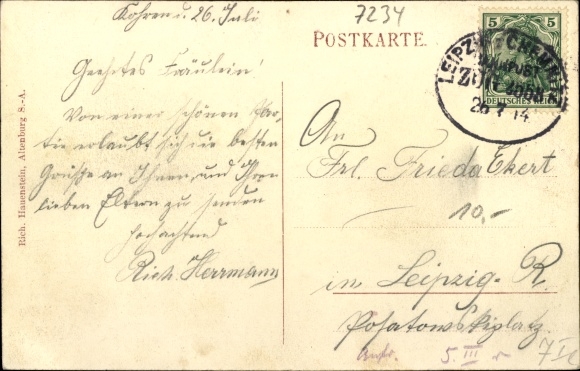 Kohren d. 26. Juli
7234
POSTKARTE.
5 5
DEUTSCHES REICH
LEIPZIG - CHEMNITZ
BAHNPOST
ZUG
26 7 14
Geehrtes Fräulein!
Von einer schönen Par-
tie erlaubt sich die besten
Grüße an Ihnen und Ihren
lieben Eltern zu senden
Hochachtend
Rich. Herrmann
An
Frl. Frieda Ekert
10,-
in Leipzig-R.
5. III r
Rich. Hauenstein, Altenburg S.-A.